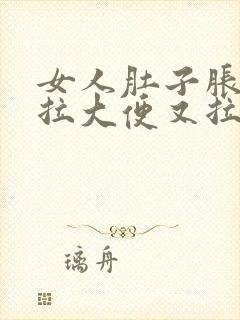 女人肚子胀
拉大便又拉
璃舟